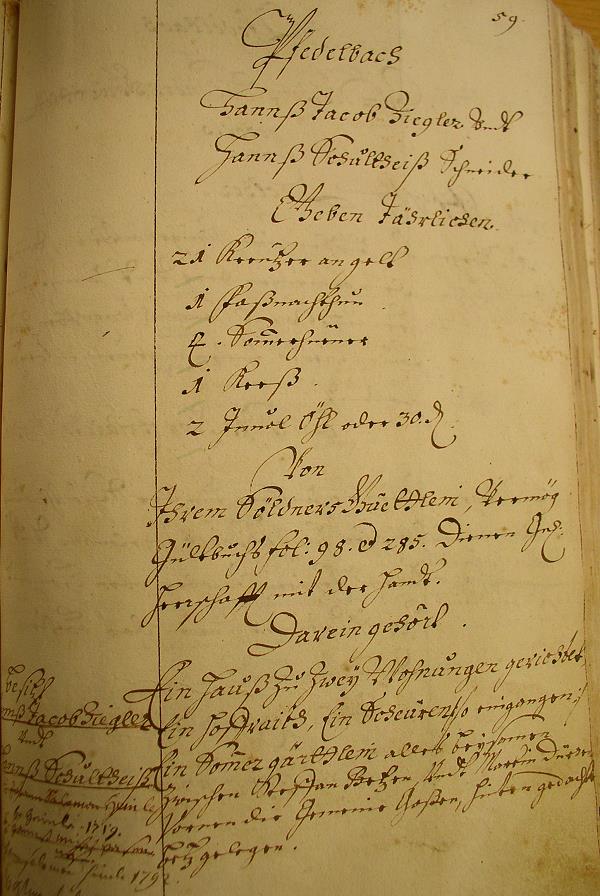 59.
Pfedelbach
Hannß Jacob Ziegler Undt
Hannß Schultheiß Schneider
Geben Jährlichen
21 Kreützer angelt
1 Faßnachthun
4. Som̄erhüner
1 Keeß.
2 Imial Öhl oder 30. d
Von
Ihrem Söldners Güethlein, Vermög
Gültbuchs fol: 98. et 285. Dienen
Herrschafft mit der Handt.
Darein gehört.
Ein Hauß zu Zwey Wohnungen gerichtet
Ein Hoffraith, Ein Scheüren /so eingangen:/
Ein Som̄er gärthlein alles beysamen
Zwischen Steffan Undt Martin
Vornen die Gemeine Gaßen, hinten gedachte
gelegen.
besitz
Jacob Ziegler
Undt
Schultheiß
Salamon
1719.